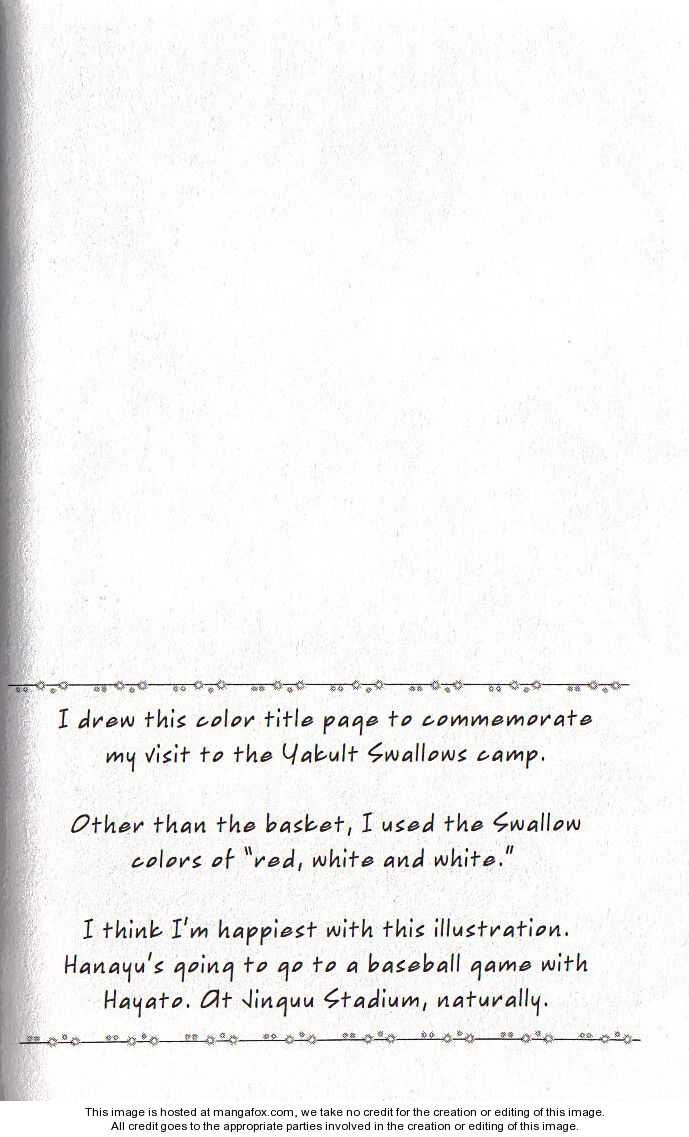 I drew this color title page to commemorate
my visit to the Yakult Swallows camp.
Other than the basket, I used the Swallow
colors of "red, white and white."
I think I'm happiest with this illustration.
Hanayu's going to go to a baseball game with
Hayato. At Jinguu Stadium, naturally.
This image is hosted at mangafox.com, we take no credit for the creation or editing of this image.
All credit goes to the appropriate parties involved in the creation or editing of this image.